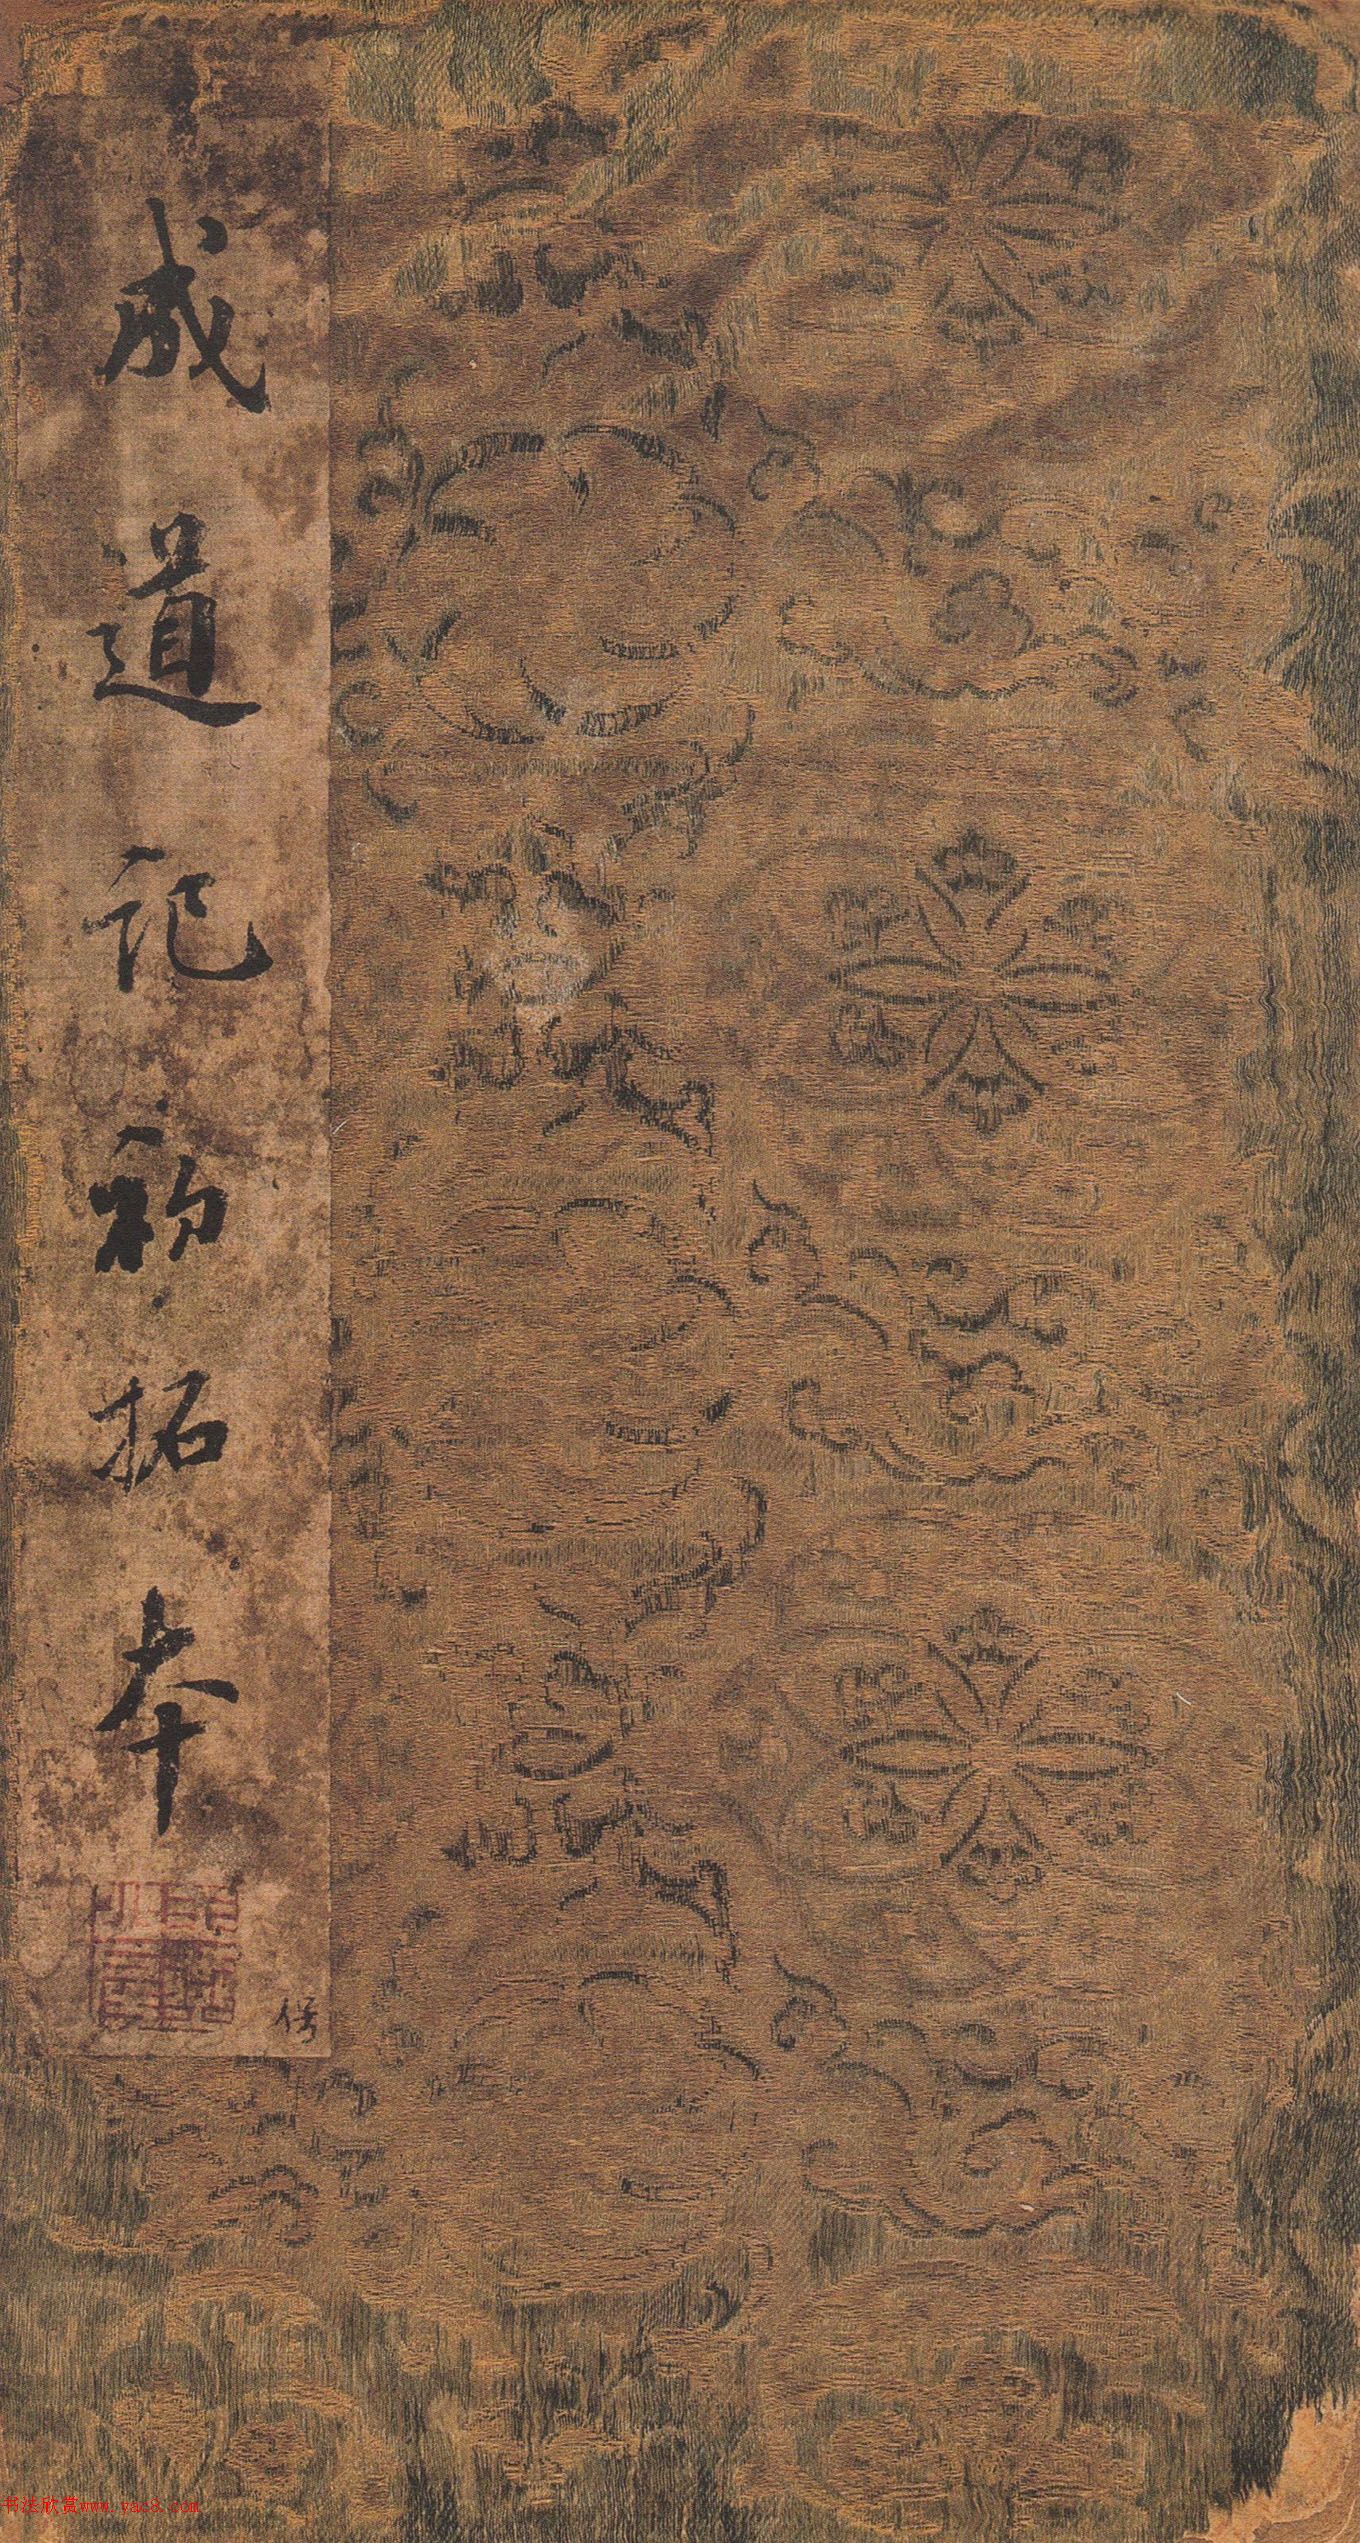 成道记初拓本
书法欣赏www.yac8.com